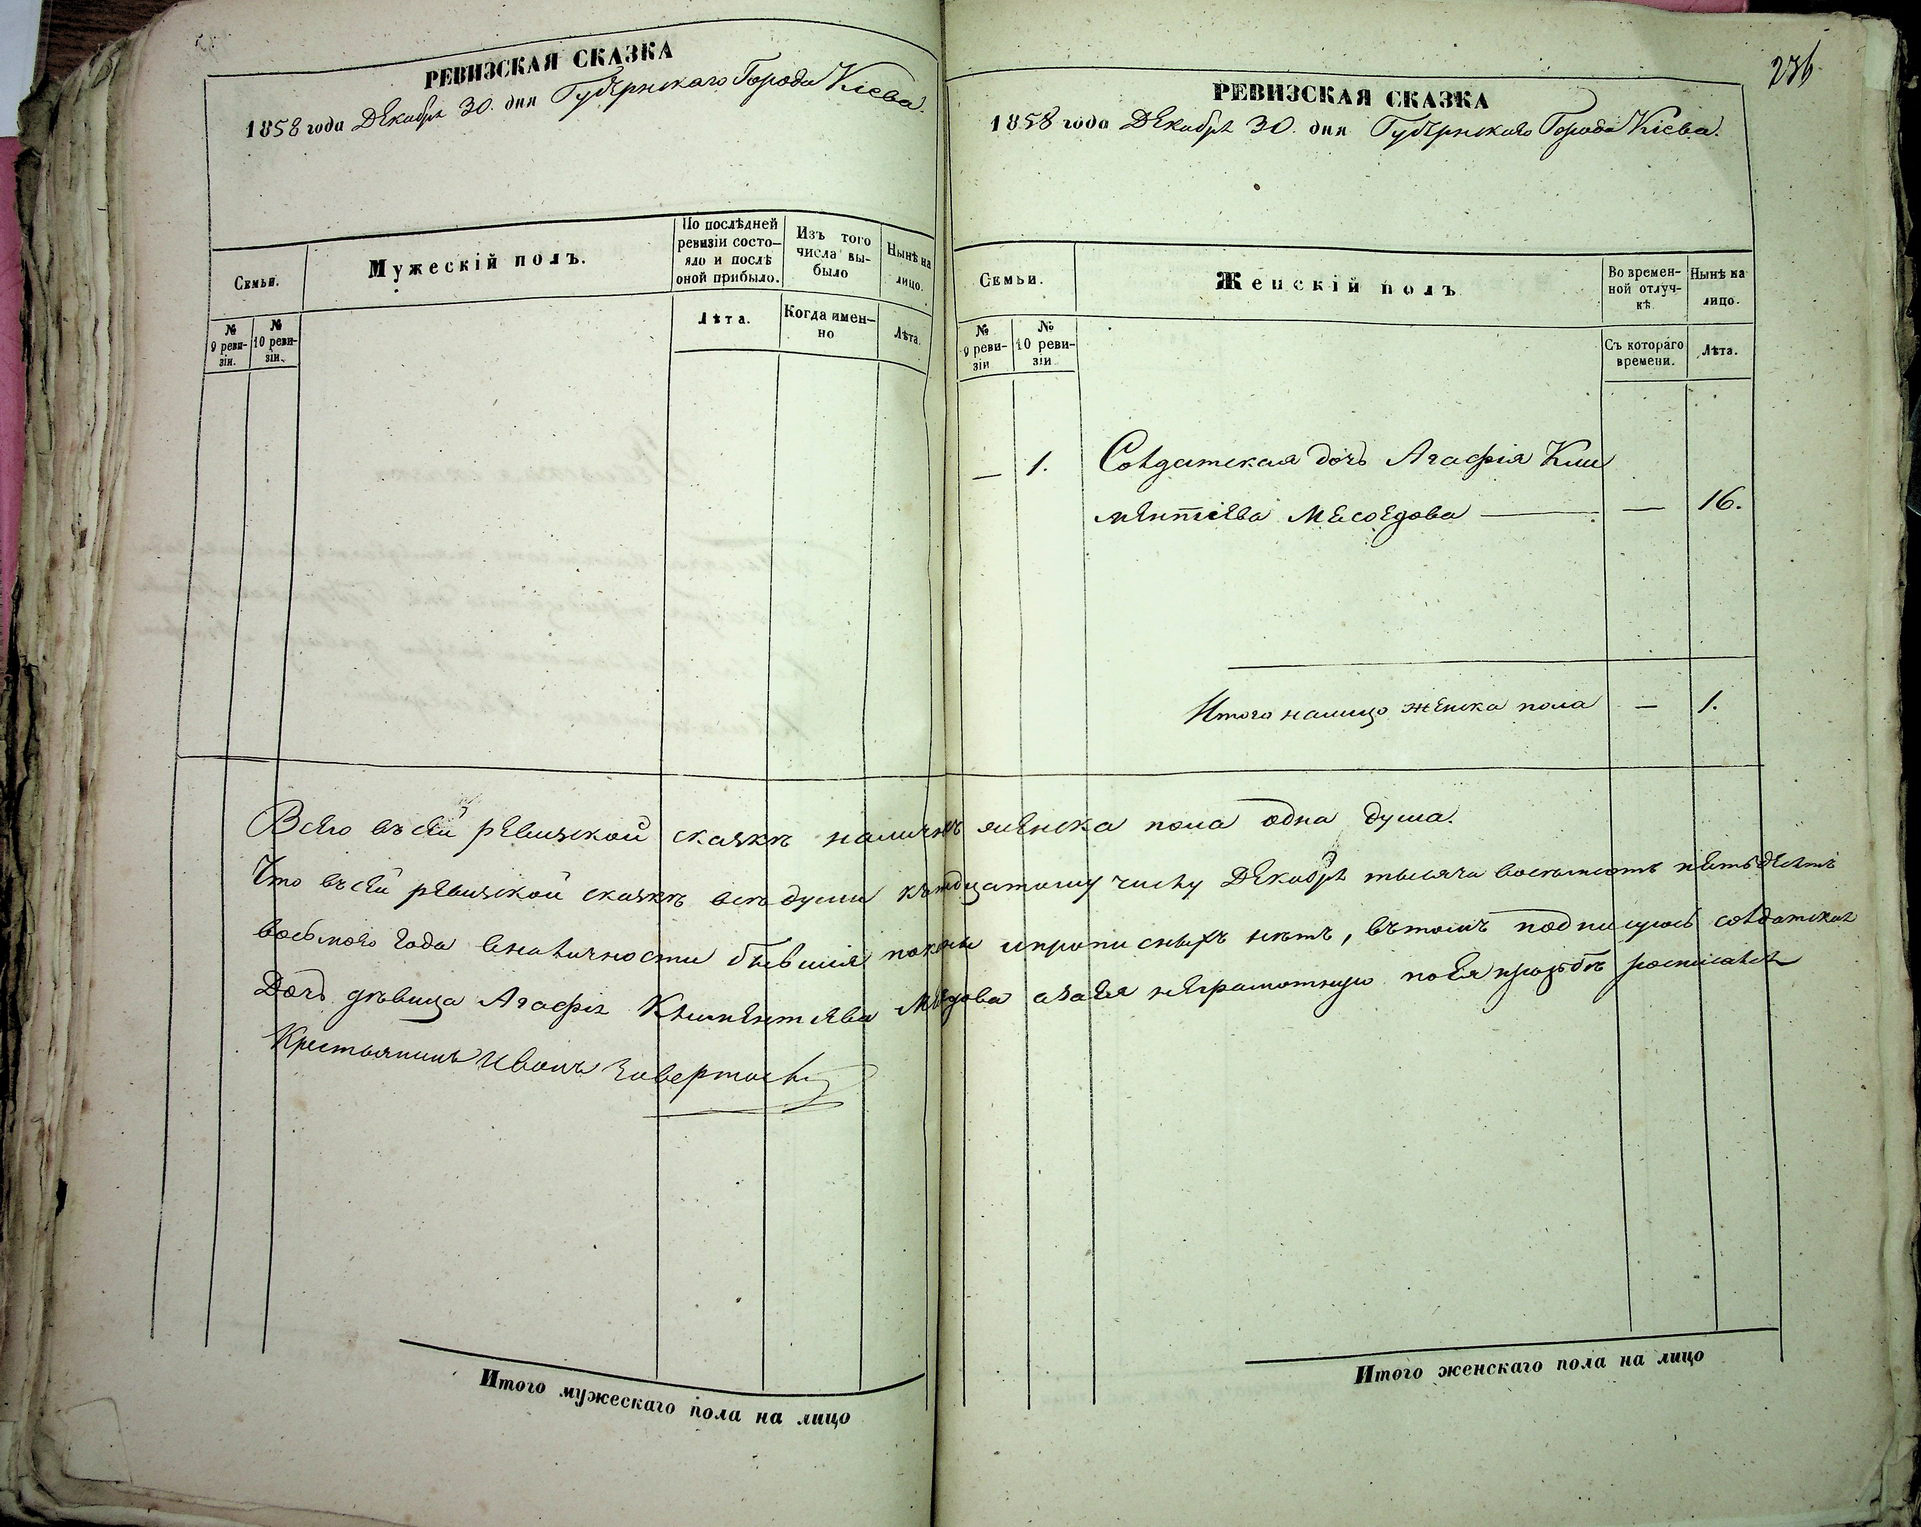 РЕВИЗСКАЯ СКАЗКА
1858 года Декабря 30. дня Губернскаго Города Кіева.
Семьи.
Мужескій полъ.
По послѣдней
ревизіи состо-
яло и послѣ
оной прибыло.
Изъ того
числа вы-
было
Нынѣ на
лицо.
№
9 реви-
зіи.
№
10 реви-
зіи.
Лѣта.
Когда имен-
но
Лѣта.
236
РЕВИЗСКАЯ СКАЗКА
1858 года Декабря 30. дня Губернскаго Города Кіева.
Семьи.
Женскій полъ
Во времен-
ной отлуч-
кѣ
Нынѣ на
лицо.
№
9 реви-
зіи
№
10 реви-
зіи
Съ котораго
времени.
Лѣта.
— 1. Солдатская дочь Агафія Кли
ментіева Месоедова — — 16.
Итого налицо женска пола — 1.
Всего въ сей ревизской сказкѣ наличнъ женска пола одна душа.
Что въ сей ревизской сказкѣ всѣ души къ тридцатому числу Декабря тысяча восемьсотъ пятьдесятъ
восьмого года вналичности бывшія и прописныхъ нѣтъ, въ томъ подписуюсь солдатская
Дочь дѣвица Агафія Климентіева а за ея неграмотную по ея прозьбѣ росписался
Крестьянинъ Иванъ
Итого мужескаго пола на лицо
Итого женскаго пола на лицо